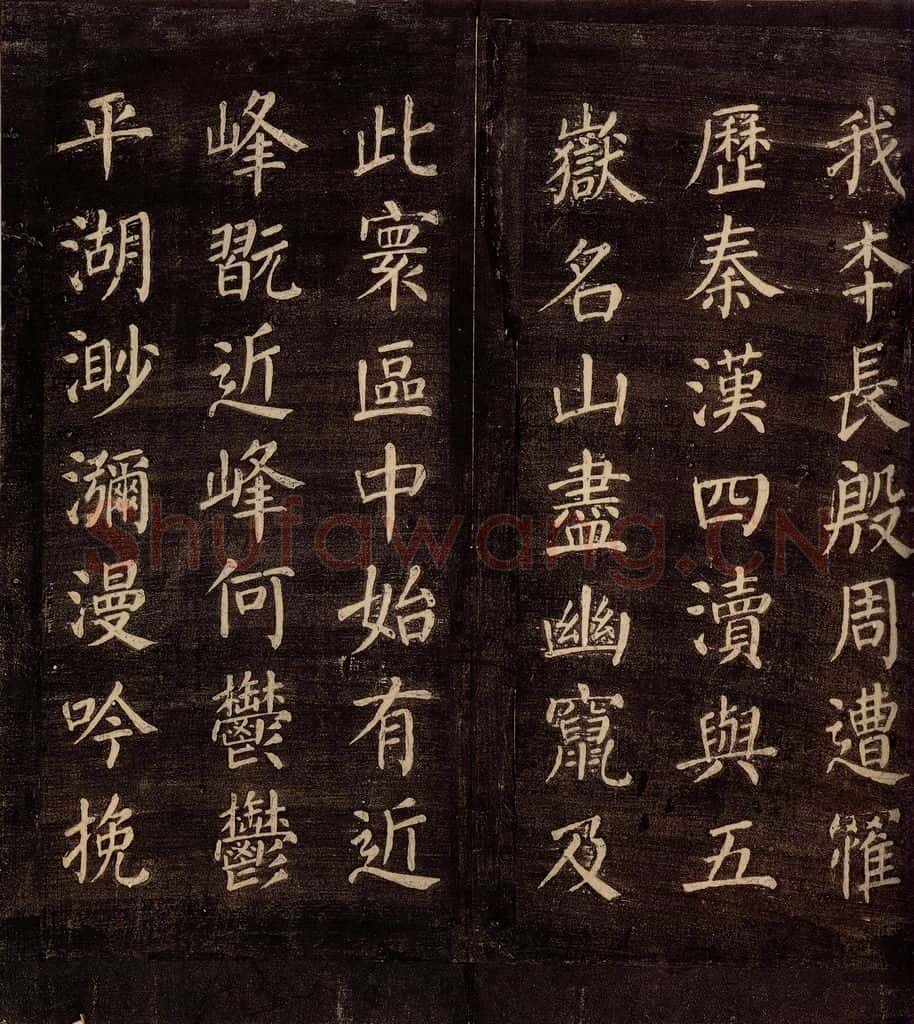 我本長殷周遭罹
歷秦漢四瀆與五
嶽名山盡幽竄及
此寰區中始有近
峰翫近峰何鬱鬱
平湖渺瀰漫吟挽
Shufawang.CN